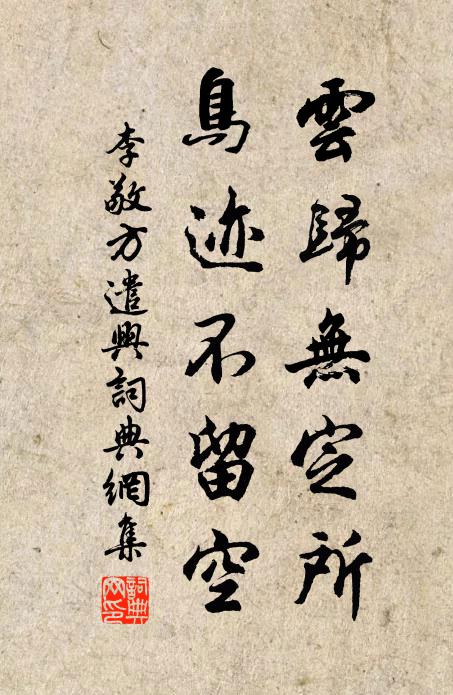 雲歸無定所
鳥迹不留空
李敬方遣興詞典網集
詞典網印